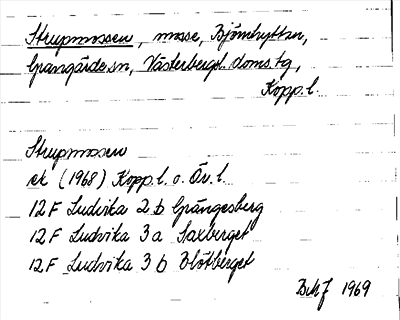 Strupmossen, mosse, Björnhyttan,
Grangärde sn, Västerbergsl. doms. tg,
Kopp. l.
Strupmossen
ek (1968) Kopp. l. o. Öv. l.
12 F Ludvika 2 b Grängesberg
12 F Ludvika 3 a Saxberget
12 F Ludvika 3 b Blötberget
1969